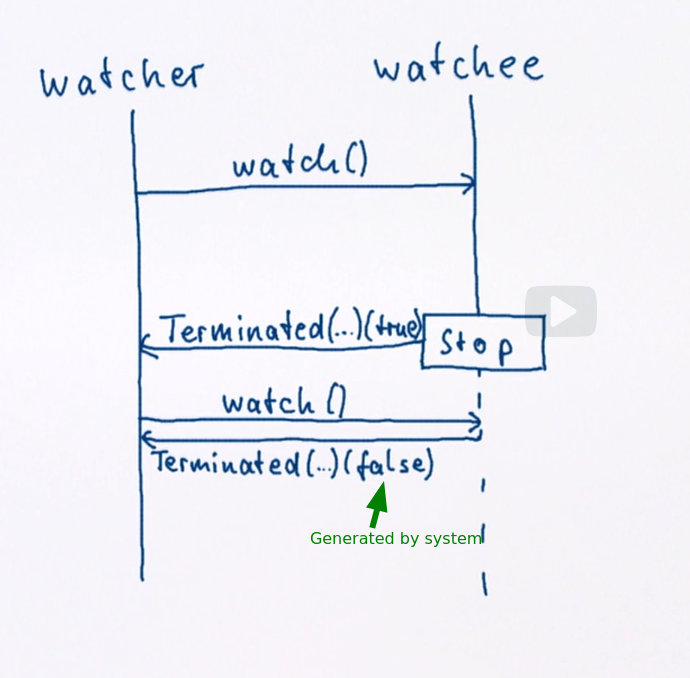 watcher
watchee
watch()
Terminated(...)(true)
Stop
watch()
Terminated(...)(false)
Generated by system